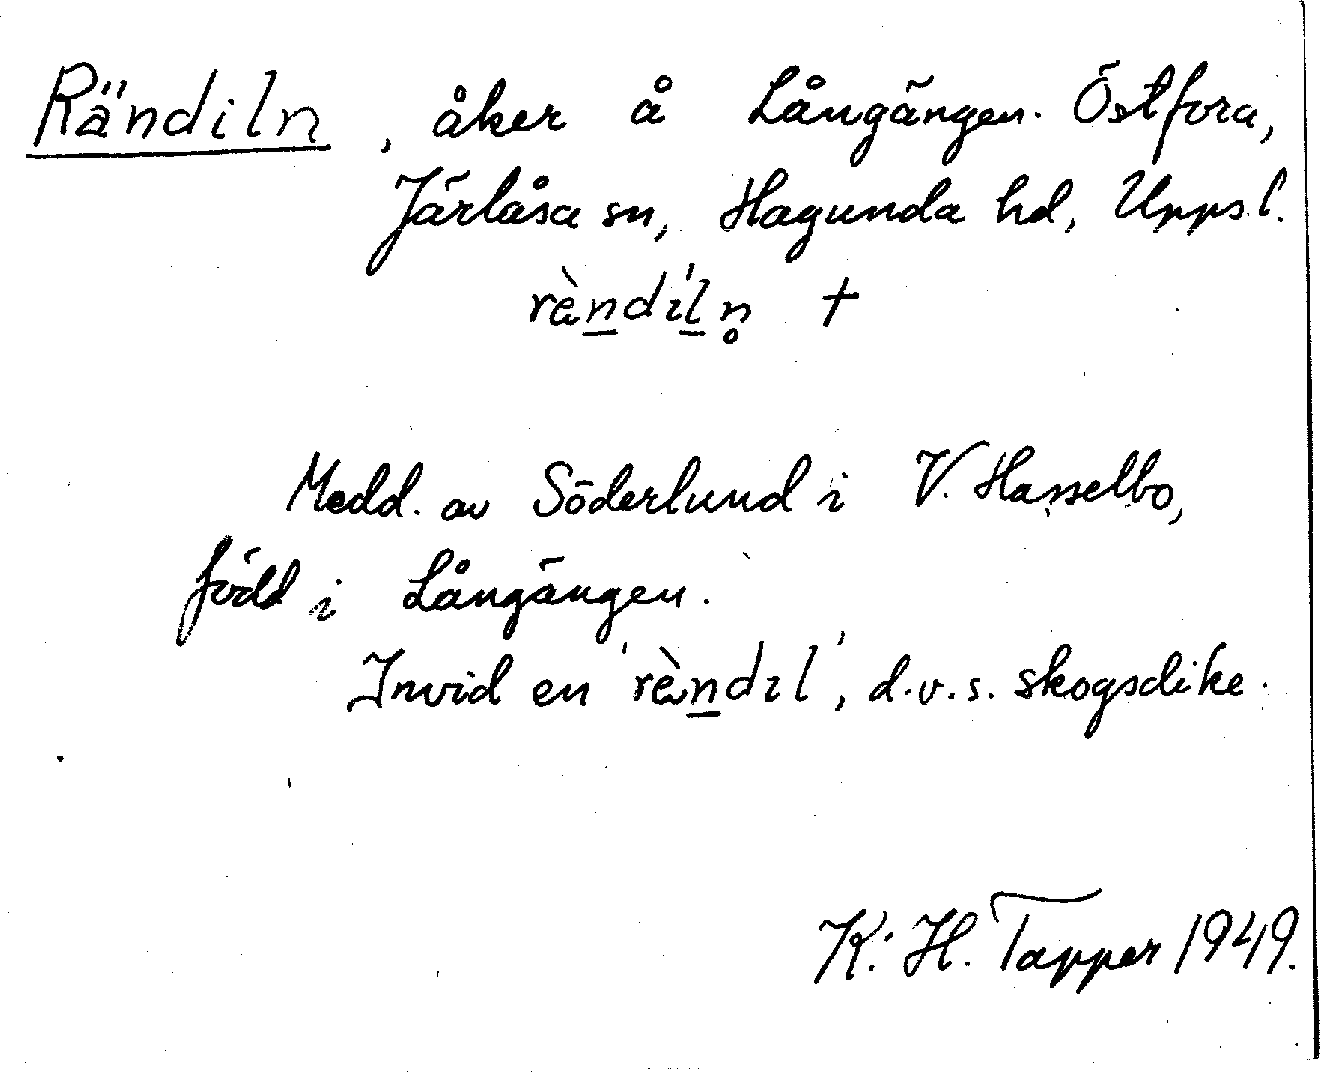 Rändiln, åker å Långängen. Östfora,
Järlåsa sn, Hagunda hd, Uppsl.
rὲn̲dıl̲n̥ +
Medd. av Söderlund i V. Hasselbo,
född i Långängen.
Invid en 'rὲn̲dıl', d.v.s. skogsdike.
K: H. Tapper 1949.